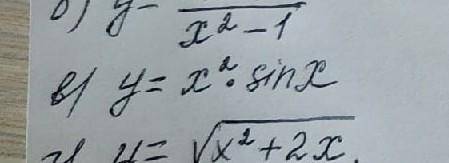 б) y = x² - 1
в) y = x² · sin x
г) y = √x² + 2x.